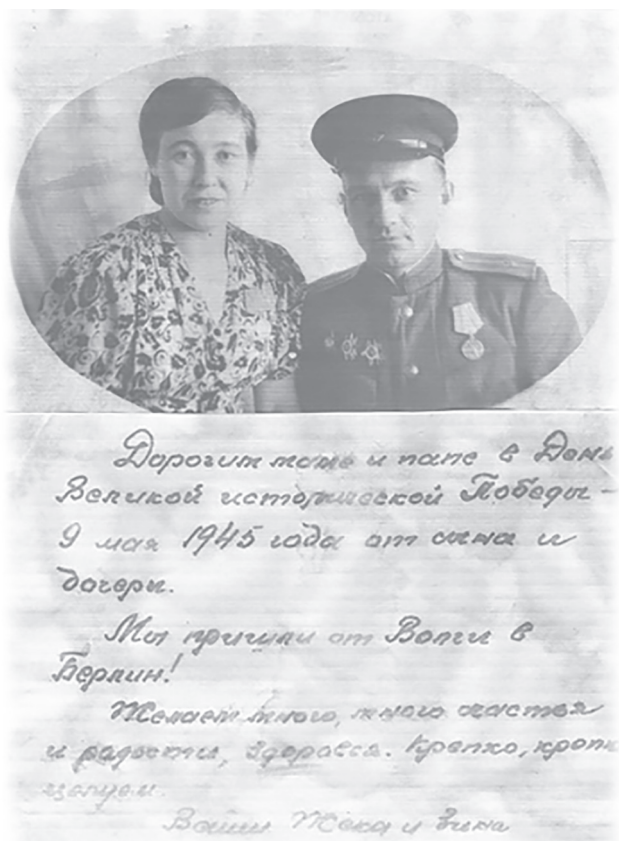 Дорогим маме и папе в День
Великой исторической Победы –
9 мая 1945 года от сына и
дочери.
Мы пришли от Волги в
Берлин!
Желаем много, много счастья
и радости, здоровья. Крепко, крепко
целуем.
Ваши Жека и Зина